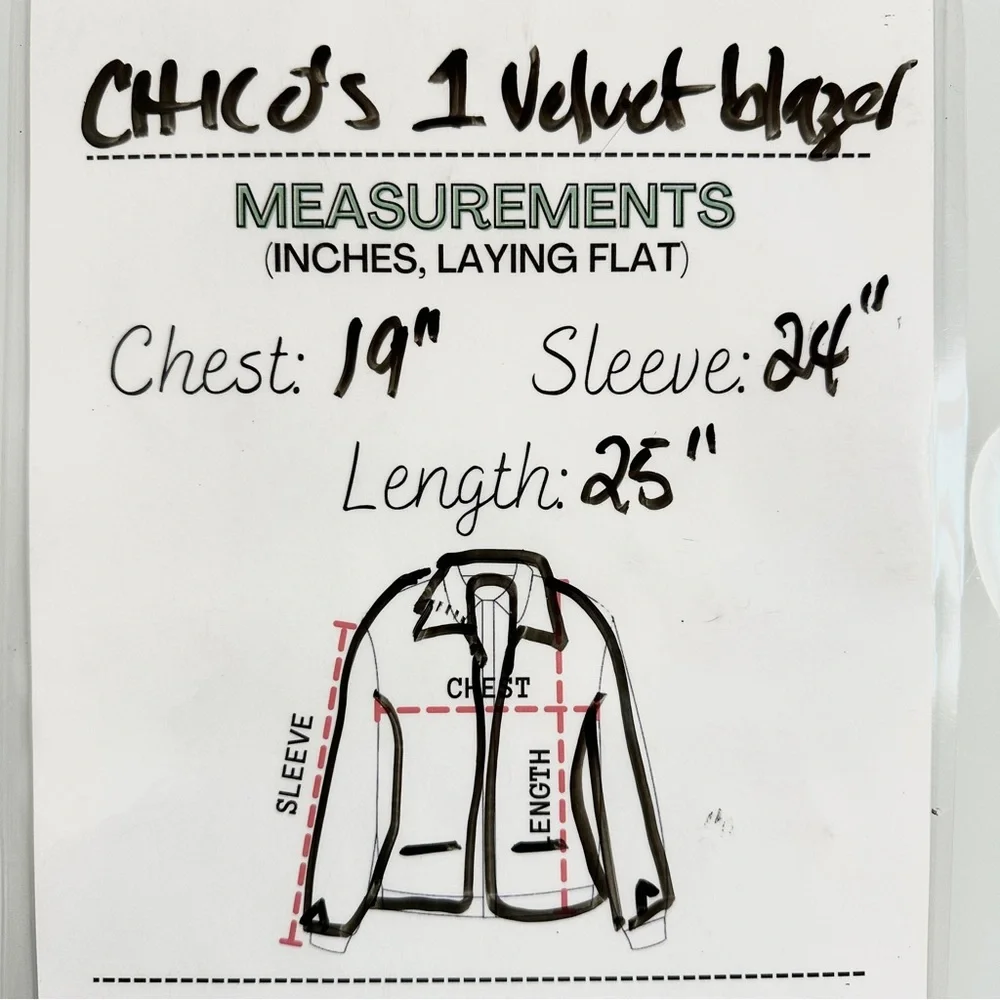 CHICO'S 1 Velvet blazer
MEASUREMENTS
(INCHES, LAYING FLAT)
Chest: 19" Sleeve: 24"
Length: 25"
CHEST
SLEEVE
LENGTH